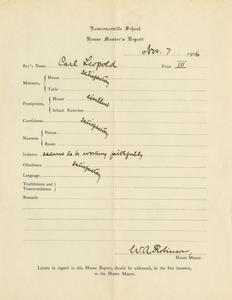 Lawrenceville School
House Master's Report
Nov. 7 1906
Boy's Name Carl Leopold Form III
Manners, House satisfactory
Table
Promptness, House excellent
School Exercises
Carefulness satisfactory
Neatness Person
Room
Industry seems to be working faithfully
Obedience satisfactory
Language
Truthfulness and Trustworthiness
Remarks
W.A. Robinson
House Master.
Letters in regard to this House Report, should be addressed, in the first instance,
to the House Master.